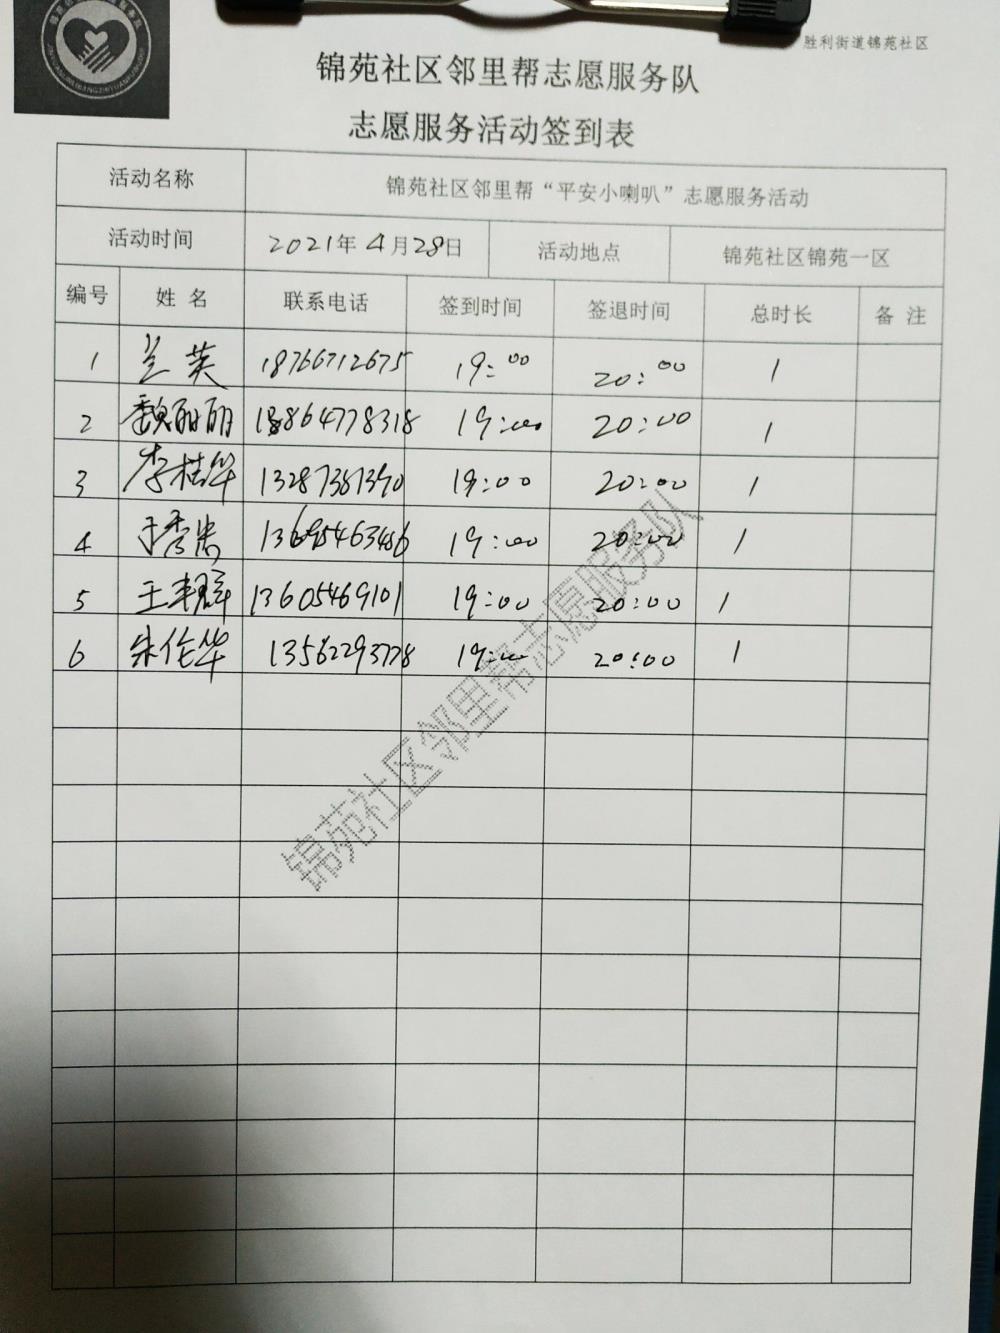 胜利街道锦苑社区
锦苑社区邻里帮志愿服务队
志愿服务活动签到表
活动名称 锦苑社区邻里帮“平安小喇叭”志愿服务活动
活动时间 2021年4月28日 活动地点 锦苑社区锦苑一区
编号 姓名 联系电话 签到时间 签退时间 总时长 备注
1 兰英 18766712675 19:00 20:00 1
2 魏丽丽 18864778318 19:00 20:00 1
3 李桂华 13287381390 19:00 20:00 1
4 于秀忠 19:00 20:00 1
5 王翠群 13605469101 19:00 20:00 1
6 朱伦华 13562293778 19:00 20:00 1
锦苑社区邻里帮志愿服务队